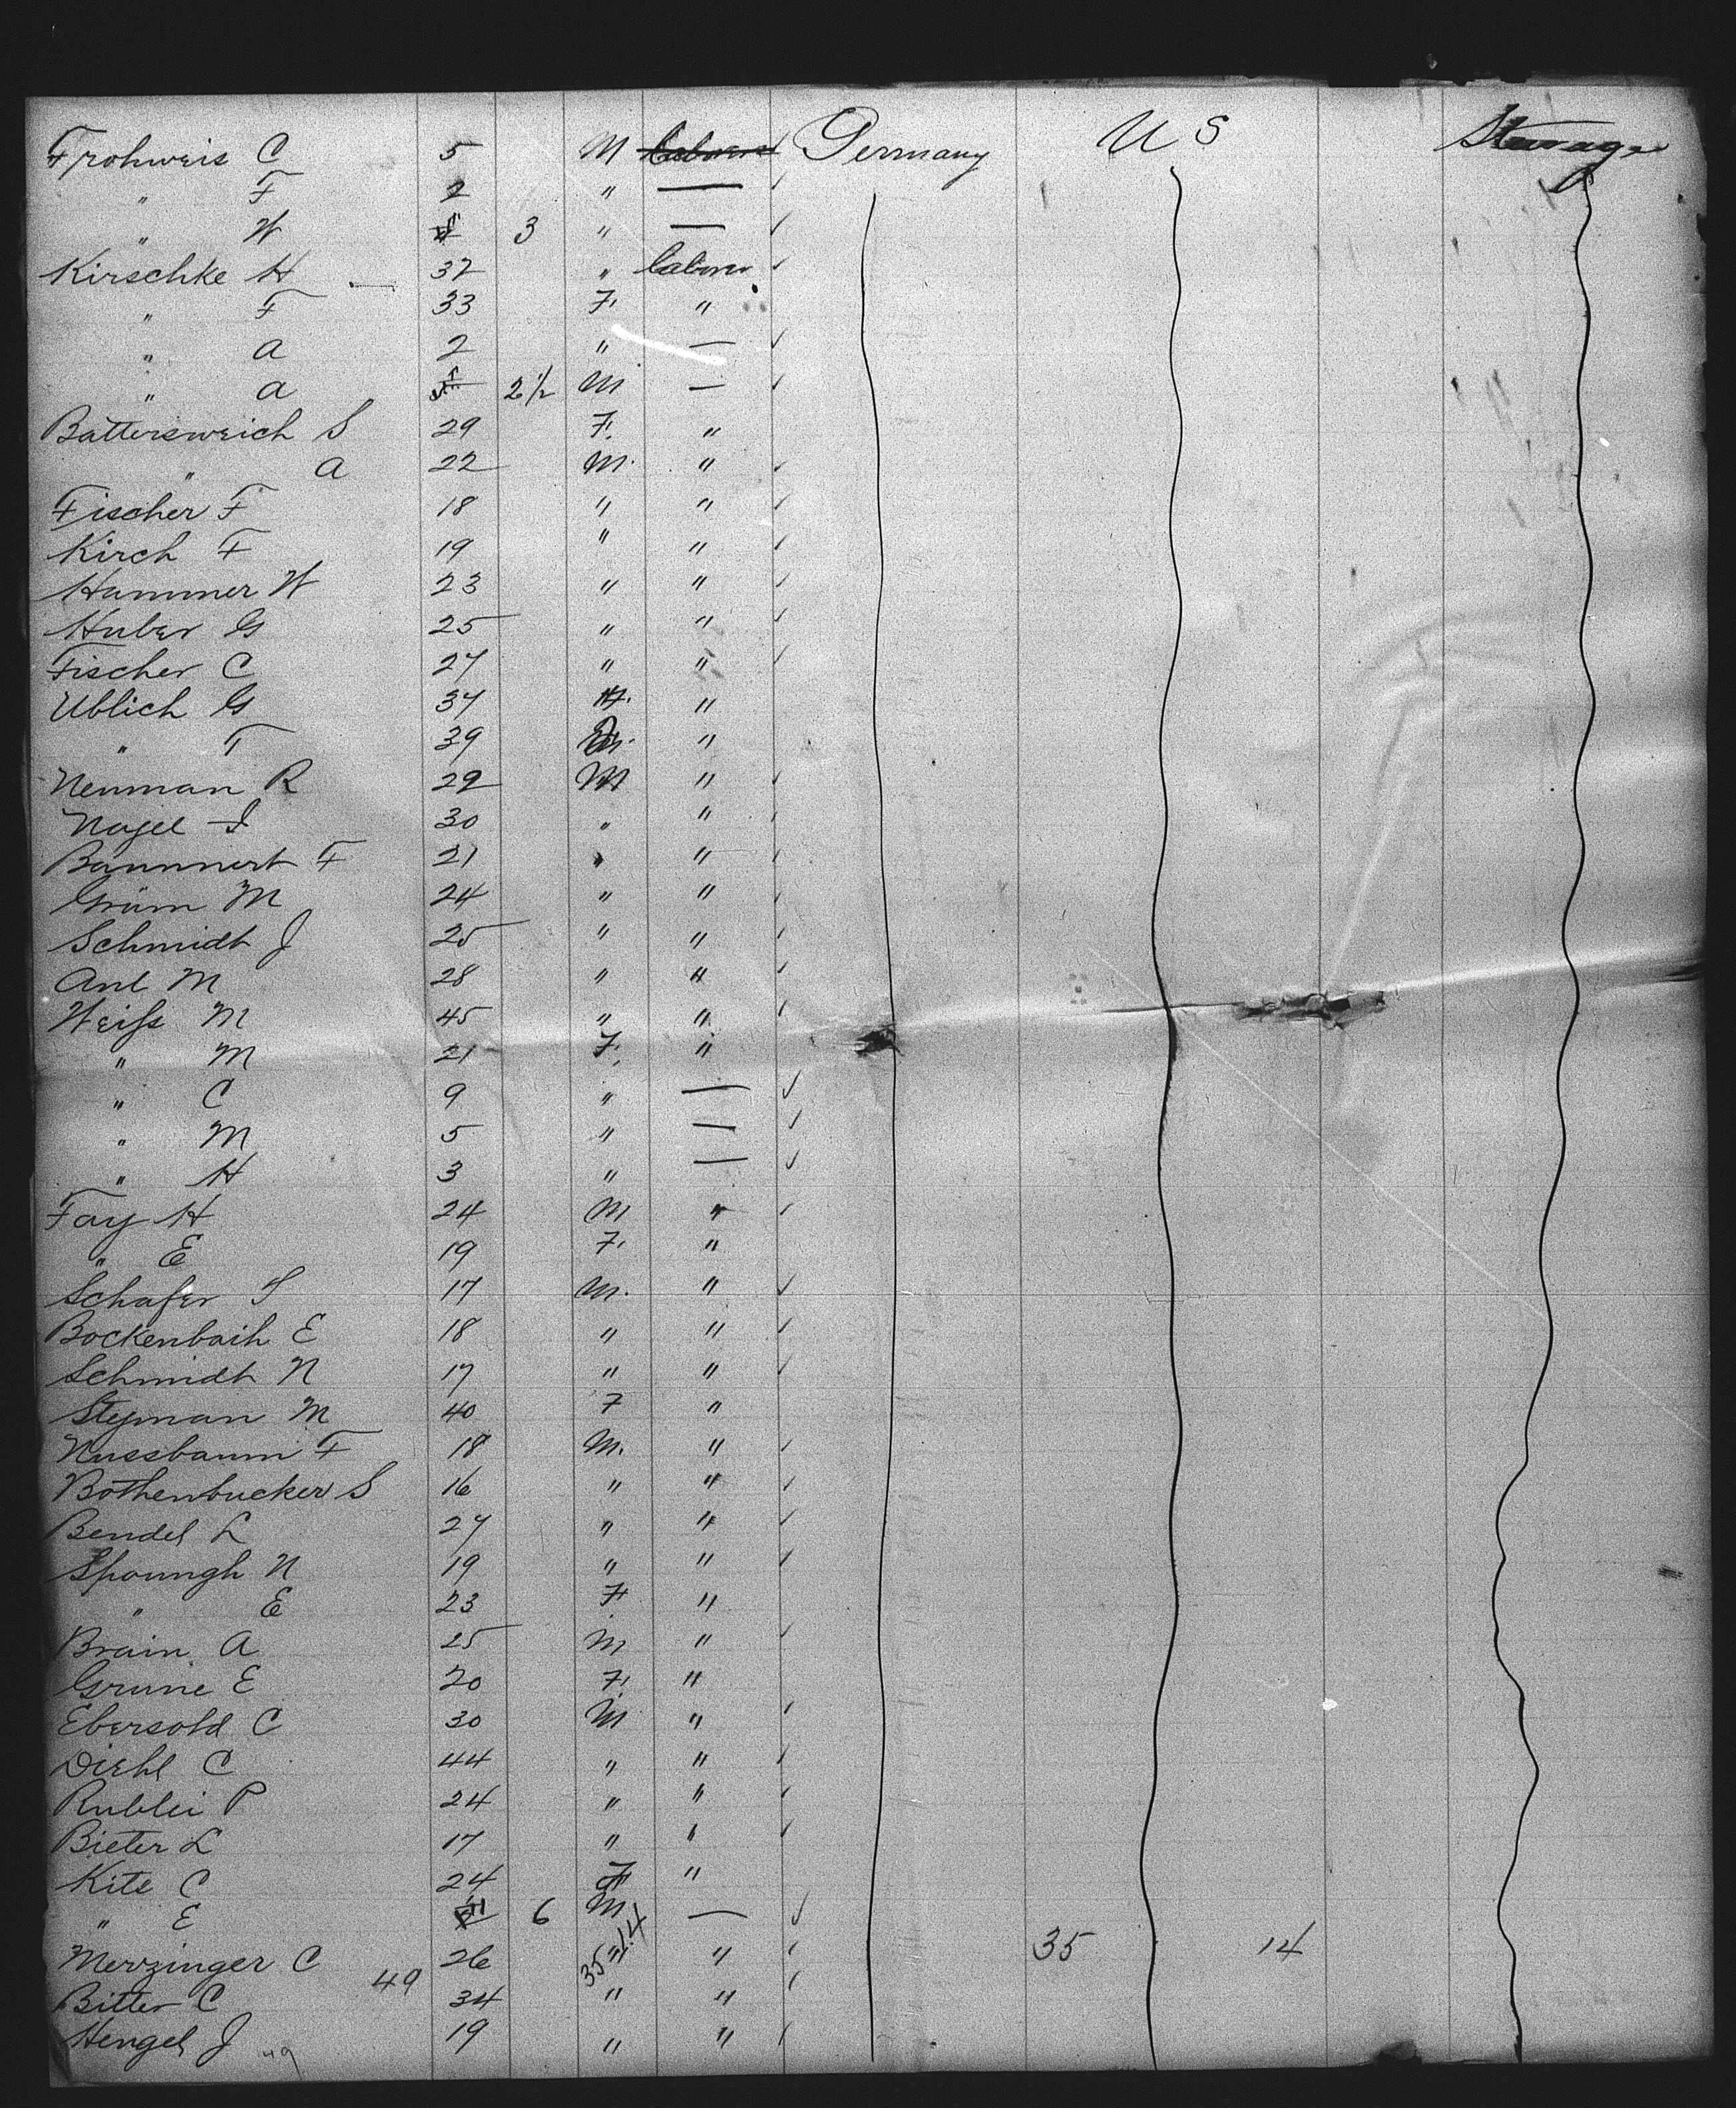 Frohweis C 5 M Laborer Germany U S Steerage
" F 2 " —
" W 3 " —
Kirschke H 32 " Laborer
" F 33 F. "
" A 2 " —
" A 2 1/2 M —
Battersweich S 29 F. "
" A 22 M. "
Fischer F 18 " "
Kirch F 19 " "
Hammer W 23 " "
Huber G 25 " "
Fischer C 27 " "
Ublich G 37 "
" T 39 "
Neuman R 29 M "
Nagel J 30 " "
Bammert F 21 " "
Grüm M 24 " "
Schmidt J 25 " "
Anl M 28 " "
Weiss M 45 " "
" M 21 F. "
" C 9 " —
" M 5 " —
" H 3 " —
Fay H 24 M "
" E 19 F. "
Schafer S 17 M. "
Bockenbaih E 18 " "
Schmidt N 17 " "
Stegman M 40 F "
Nussbaum F 18 M. "
Bothenbucker S 16 " "
Bendel L 27 " "
Spoungh N 19 " "
" E 23 F "
Brain A 25 M "
Grune E 20 F. "
Ebersold C 30 M "
Diehl C 44 " "
Rublei P 24 " "
Bieter L 17 " "
Kite C 24 F "
" E 6 M —
Merzinger C 26 35 " 14 " 35 14
49
Bitter C 34 " "
Hengel J 49 19 " "